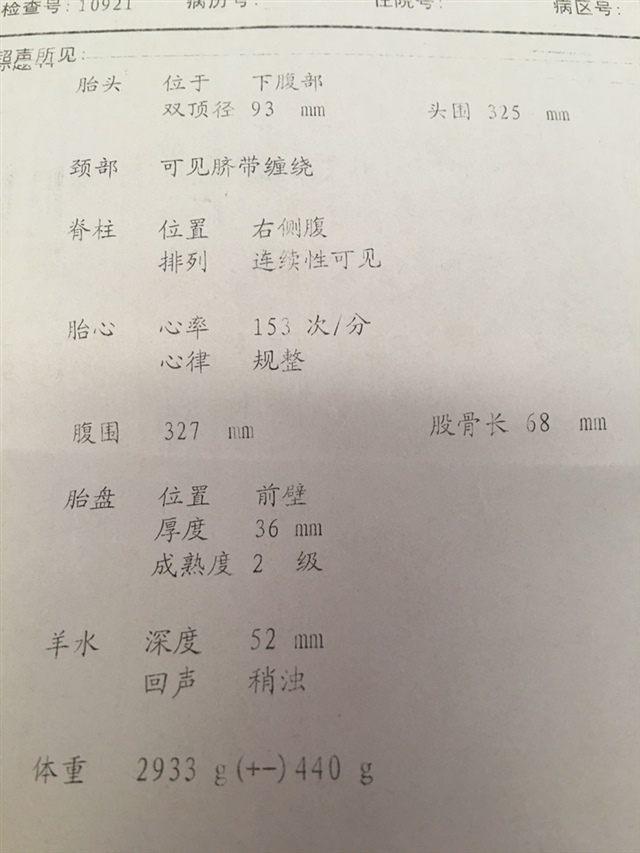 检查号: 10921 病历号: 住院号: 病区号:
超声所见:
胎头 位于 下腹部
双顶径 93 mm 头围 325 mm
颈部 可见脐带缠绕
脊柱 位置 右侧腹
排列 连续性可见
胎心 心率 153 次/分
心律 规整
腹围 327 mm 股骨长 68 mm
胎盘 位置 前壁
厚度 36 mm
成熟度 2 级
羊水 深度 52 mm
回声 稍浊
体重 2933 g(+-)440 g